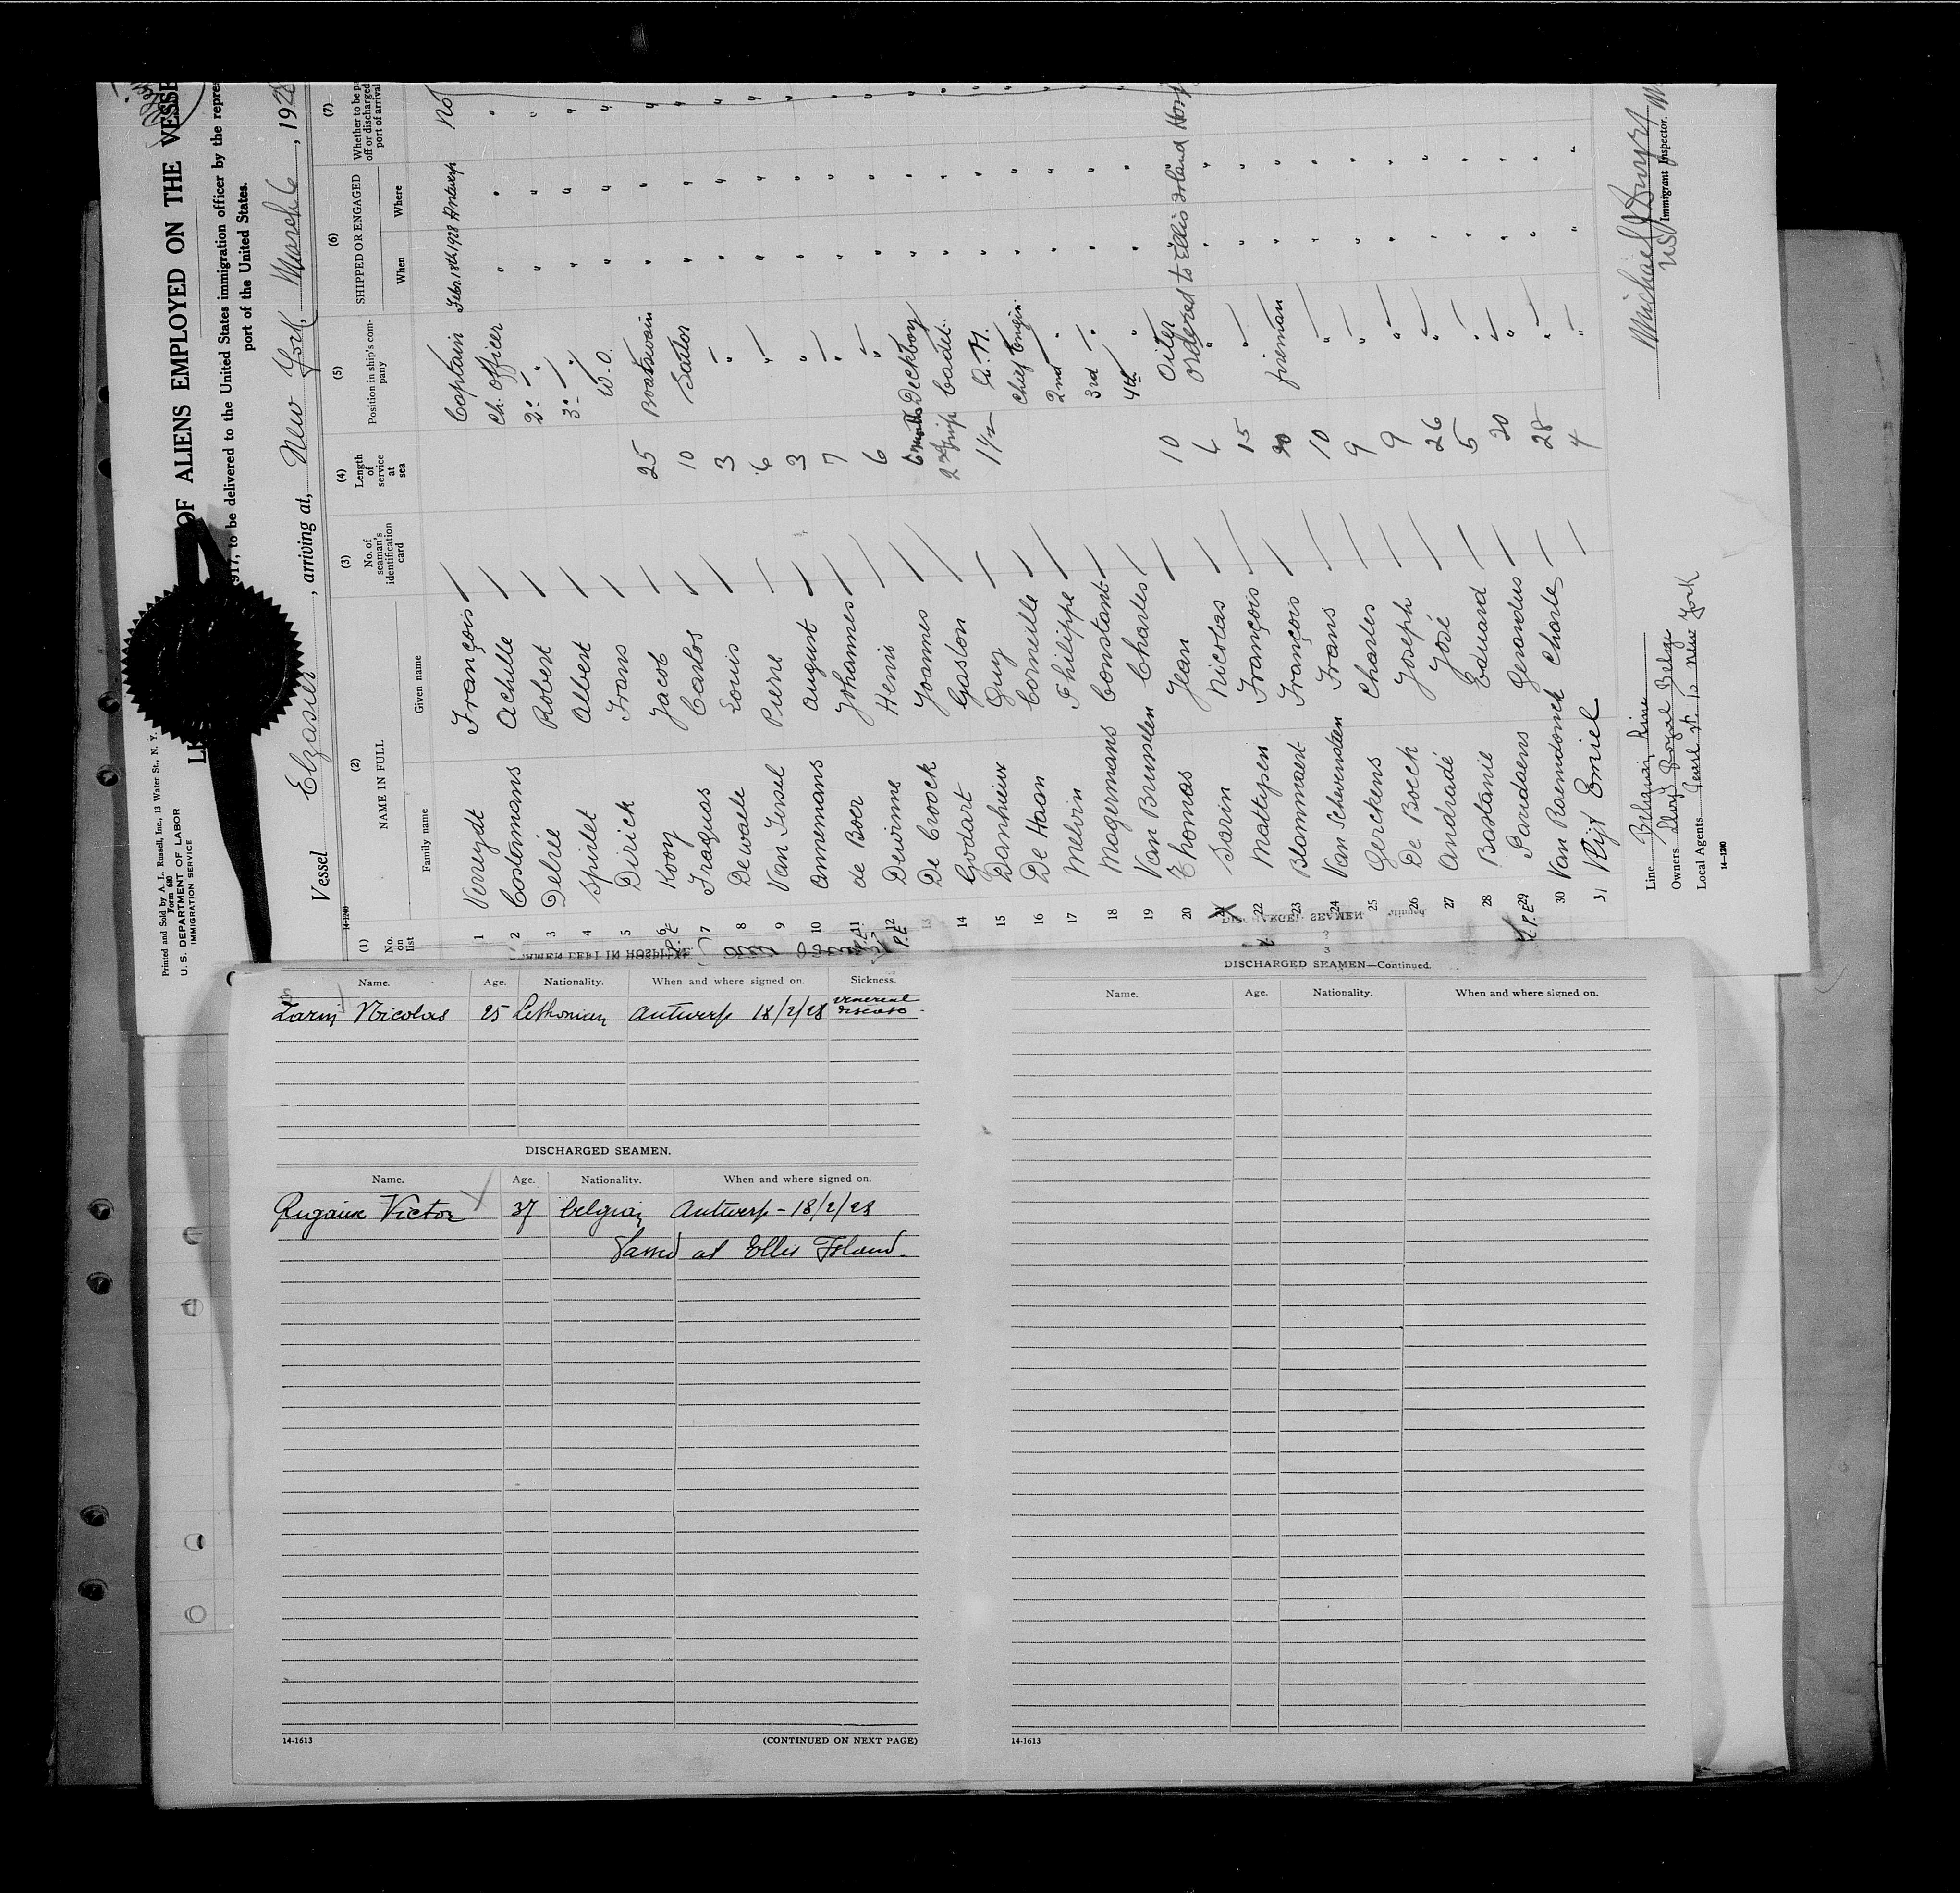 Printed and Sold by A. L. Russell, Inc., 13 Water St., N. Y.
Form 680
U. S. DEPARTMENT OF LABOR
IMMIGRATION SERVICE
OF ALIENS EMPLOYED ON THE VESSE
917, to be delivered to the United States immigration officer by the repre
port of the United States.
Vessel Elzasier, arriving at, New York, March 6, 1928
14-1240
(1) (2) (3) (4) (5) (6) (7)
No. on list
NAME IN FULL
Family name Given name
No. of seaman's identification card
Length of service at sea
Position in ship's company
SHIPPED OR ENGAGED
When Where
Whether to be p
off or discharged
port of arrival
1 Verreydt François Captain Febr. 18th 1928 Antwerp No
2 Costermans Achille Ch. Officer " " "
3 Delrée Robert 2° " " " "
4 Spirlet Albert 3° " " " "
5 Dirick Frans W. O. " " "
6 Kooy Jacob 25 Boatswain " " "
7 Fraguas Carlos 10 Sailor " " "
8 Dewalle Louis 3 " " " "
9 Van Iersel Pierre 6 " " " "
10 Annemans August 3 " " " "
11 de Boer Johannes 7 " " " "
12 Dewinne Henri 6 " " " "
13 De Croock Joannes 6 months Deckboy " " "
14 Godart Gaston 2nd Trip Cadet " " "
15 Danhieux Guy 1 1/2 " " "
16 De Haan Corneille Chief Engin " " "
17 Melvin Philippe 2nd " " " "
18 Magermans Constant 3rd " " " "
19 Van Brusselen Charles 4th " " " "
20 Thomas Jean 10 Oiler
21 Nicolas 6 " Ordered to Ellis Island Hosp
22 Mattysen François 15 " " "
23 Blommaert François 20 fireman " "
24 Van Schevensteen Frans 10 " " "
25 Gerckens Charles 9 " " "
26 De Boeck Joseph 9 " " "
27 Andradé José 26 " " "
28 Bastanie Eduard 5 " " "
29 Paridaens Gerardus 20 " " "
30 Van Raemdonck Charles 28 " " "
31 Rijf Emiel 4 " " "
P.E
P.E
Line Belgian Line
Owners Lloyd Royal Belge
Local Agents Pearl St. 10 New York
14-1240
Michael Dwyer
Immigrant Inspector.
SEAMEN LEFT IN HOSPITAL
DISCHARGED SEAMEN
Name. Age. Nationality. When and where signed on. Sickness.
Zarin Nicolas 25 Lethonian Antwerp 18/2/28 venereal disease
DISCHARGED SEAMEN.
Name. Age. Nationality. When and where signed on.
Rugaux Victor 37 belgian Antwerp - 18/2/28
at Ellis Island.
14-1613 (CONTINUED ON NEXT PAGE)
DISCHARGED SEAMEN—Continued.
Name. Age. Nationality. When and where signed on.
14-1613